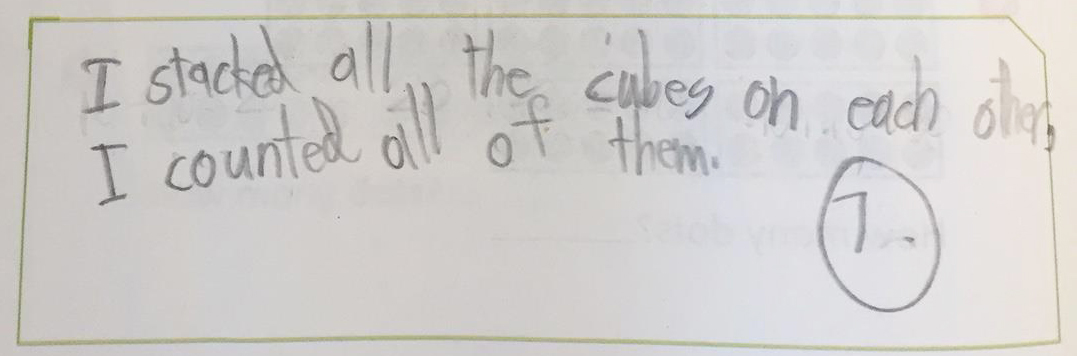 I stacked all the cubes on each other,
I counted all of them.
7.
How many dots?